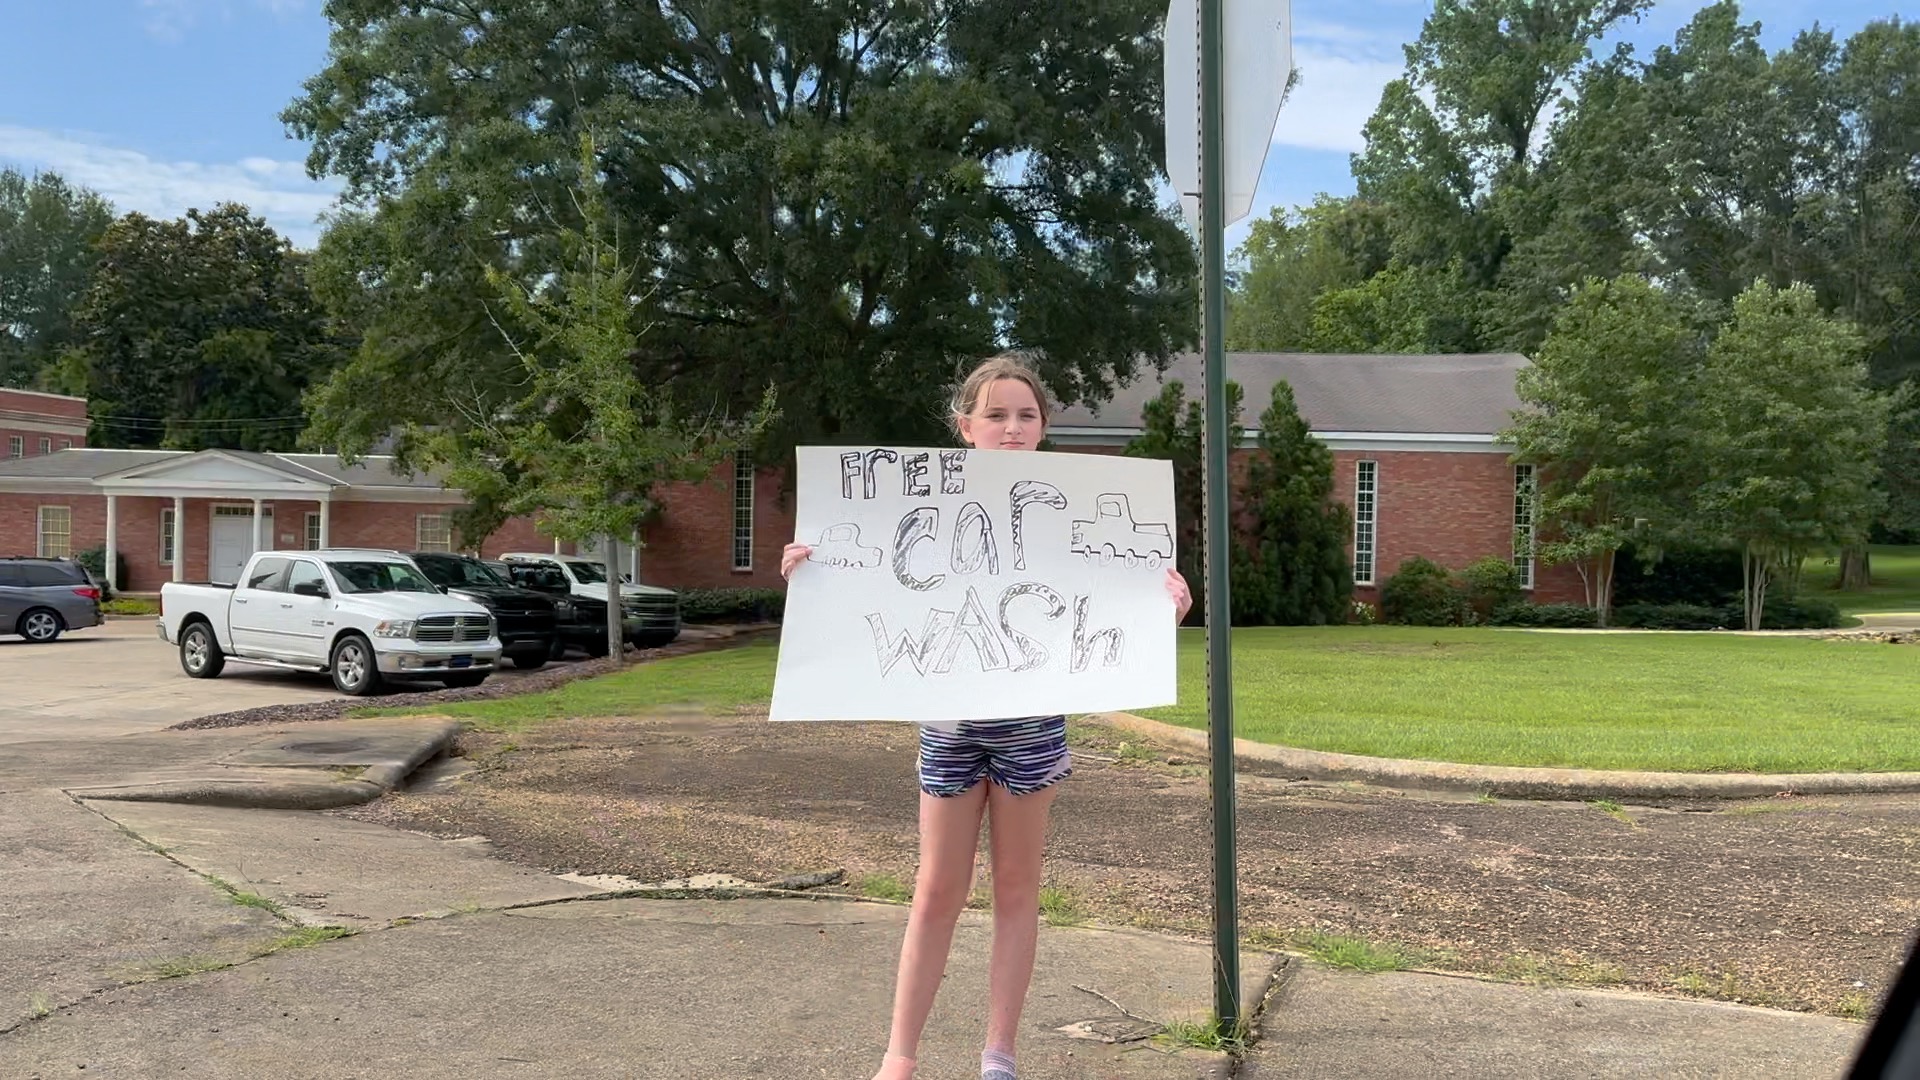 FrEE
Car
WASh